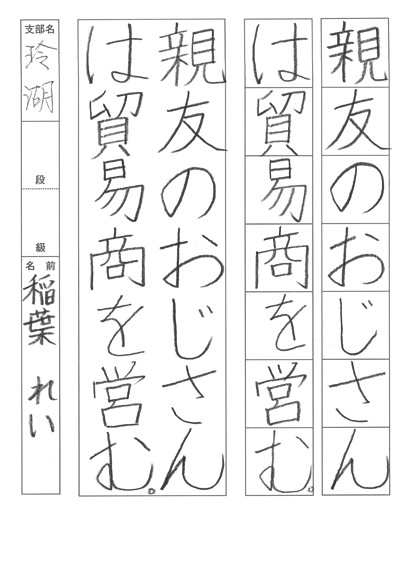 親友のおじさん
は貿易商を営む。
親友のおじさん
は貿易商を営む。
支部名
玲湖
段
級
名前
稲葉 れい